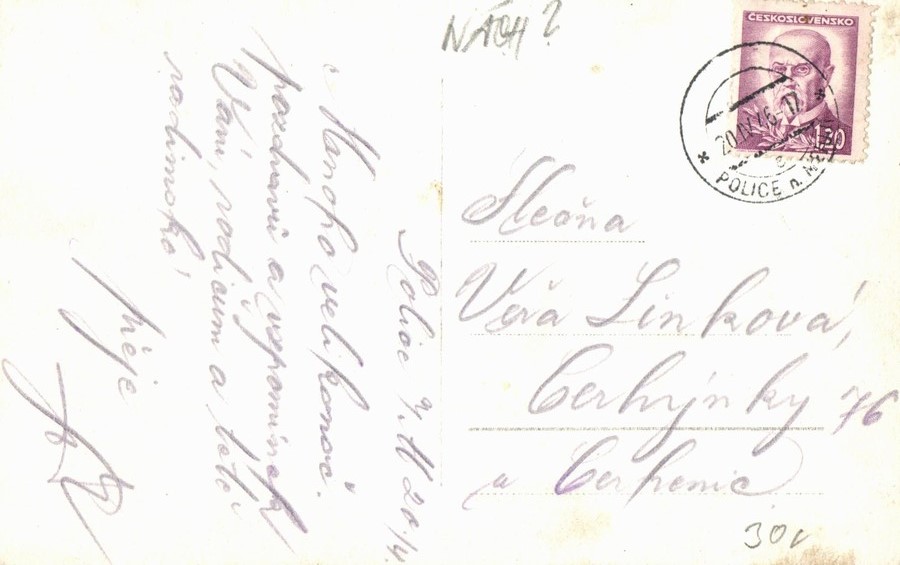 NÁCH?
ČESKOSLOVENSKO
1.20
20.IV.46.-17
POLICE n. M
Police n./M 20./4.
Mnoho velikonoč.
pozdravů a vzpomínek
Vám, rodičům a tetě
radimské
přeje
Slečna
Věra Linková,
Cerhýnky 76
u Cerhenic
30,